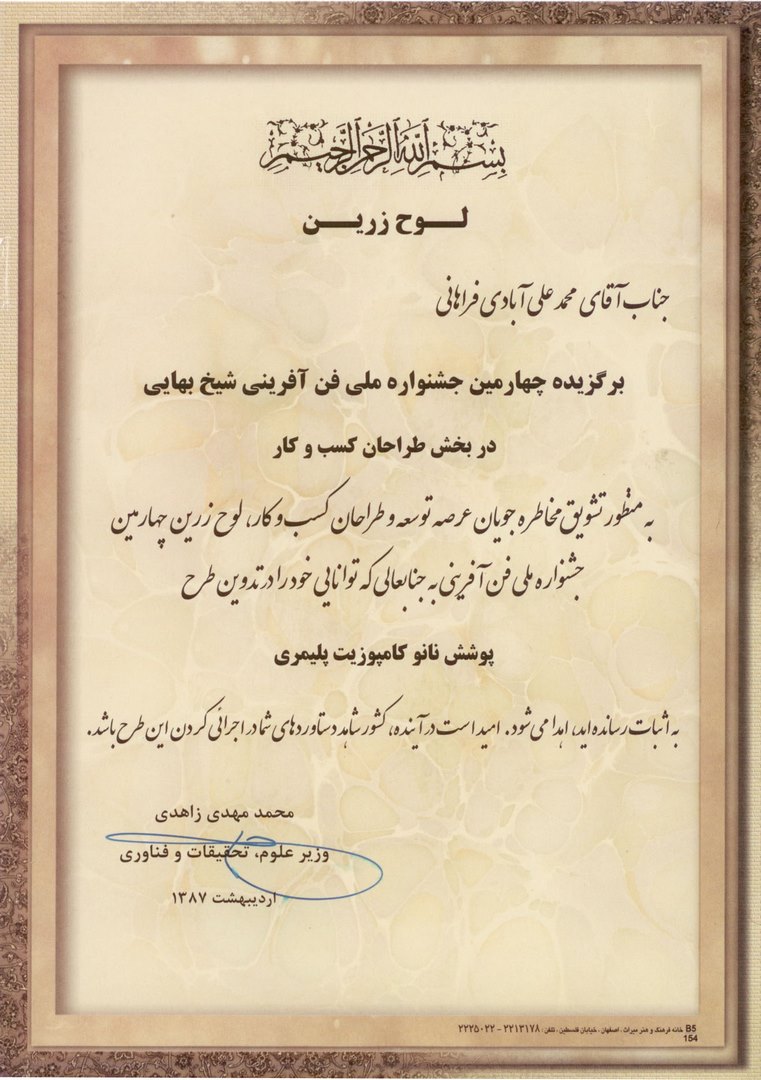 بسم الله الرحمن الرحیم
لوح زرین
جناب آقای محمد علی آبادی فراهانی
برگزیده چهارمین جشنواره ملی فن آفرینی شیخ بهایی
در بخش طراحان کسب و کار
به منظور تشویق مخاطره جویان عرصه توسعه و طراحان کسب و کار، لوح زرین چهارمین
جشنواره ملی فن آفرینی به جنابعالی که توانایی خود را در تدوین طرح
پوشش نانو کامپوزیت پلیمری
به اثبات رسانده اید، اهدا می شود. امید است در آینده، کشور شاهد دستاوردهای شما در اجرائی کردن این طرح باشد.
محمد مهدی زاهدی
وزیر علوم، تحقیقات و فناوری
اردیبهشت ۱۳۸۷
B5 خانه فرهنگ و هنر میراث ، اصفهان ، خیابان فلسطین ، تلفن : ۲۲۱۳۱۷۸ - ۲۲۲۵۰۲۲
154